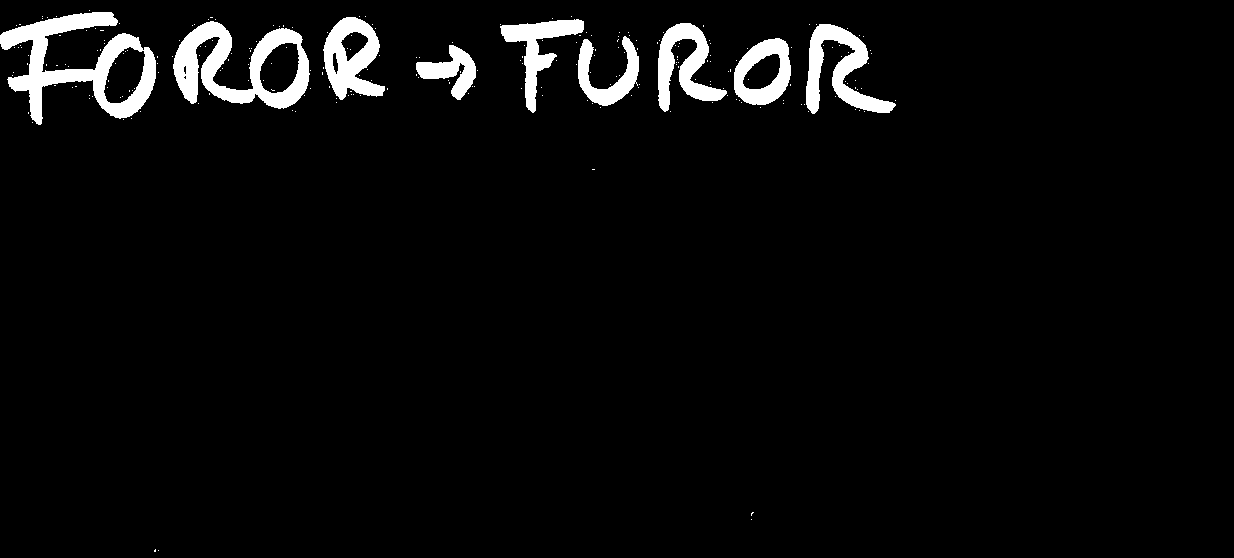 FOROR → FUROR